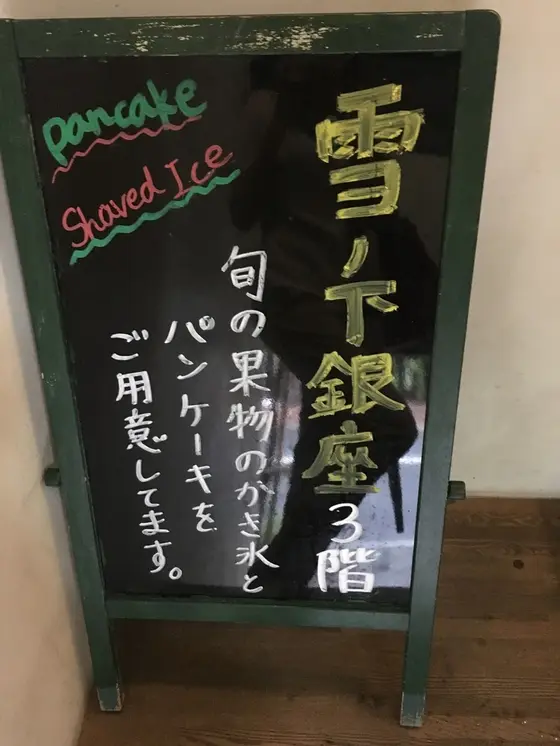 pancake
Shaved Ice
雪ノ下銀座3階
旬の果物のかき氷と
パンケーキを
ご用意してます。